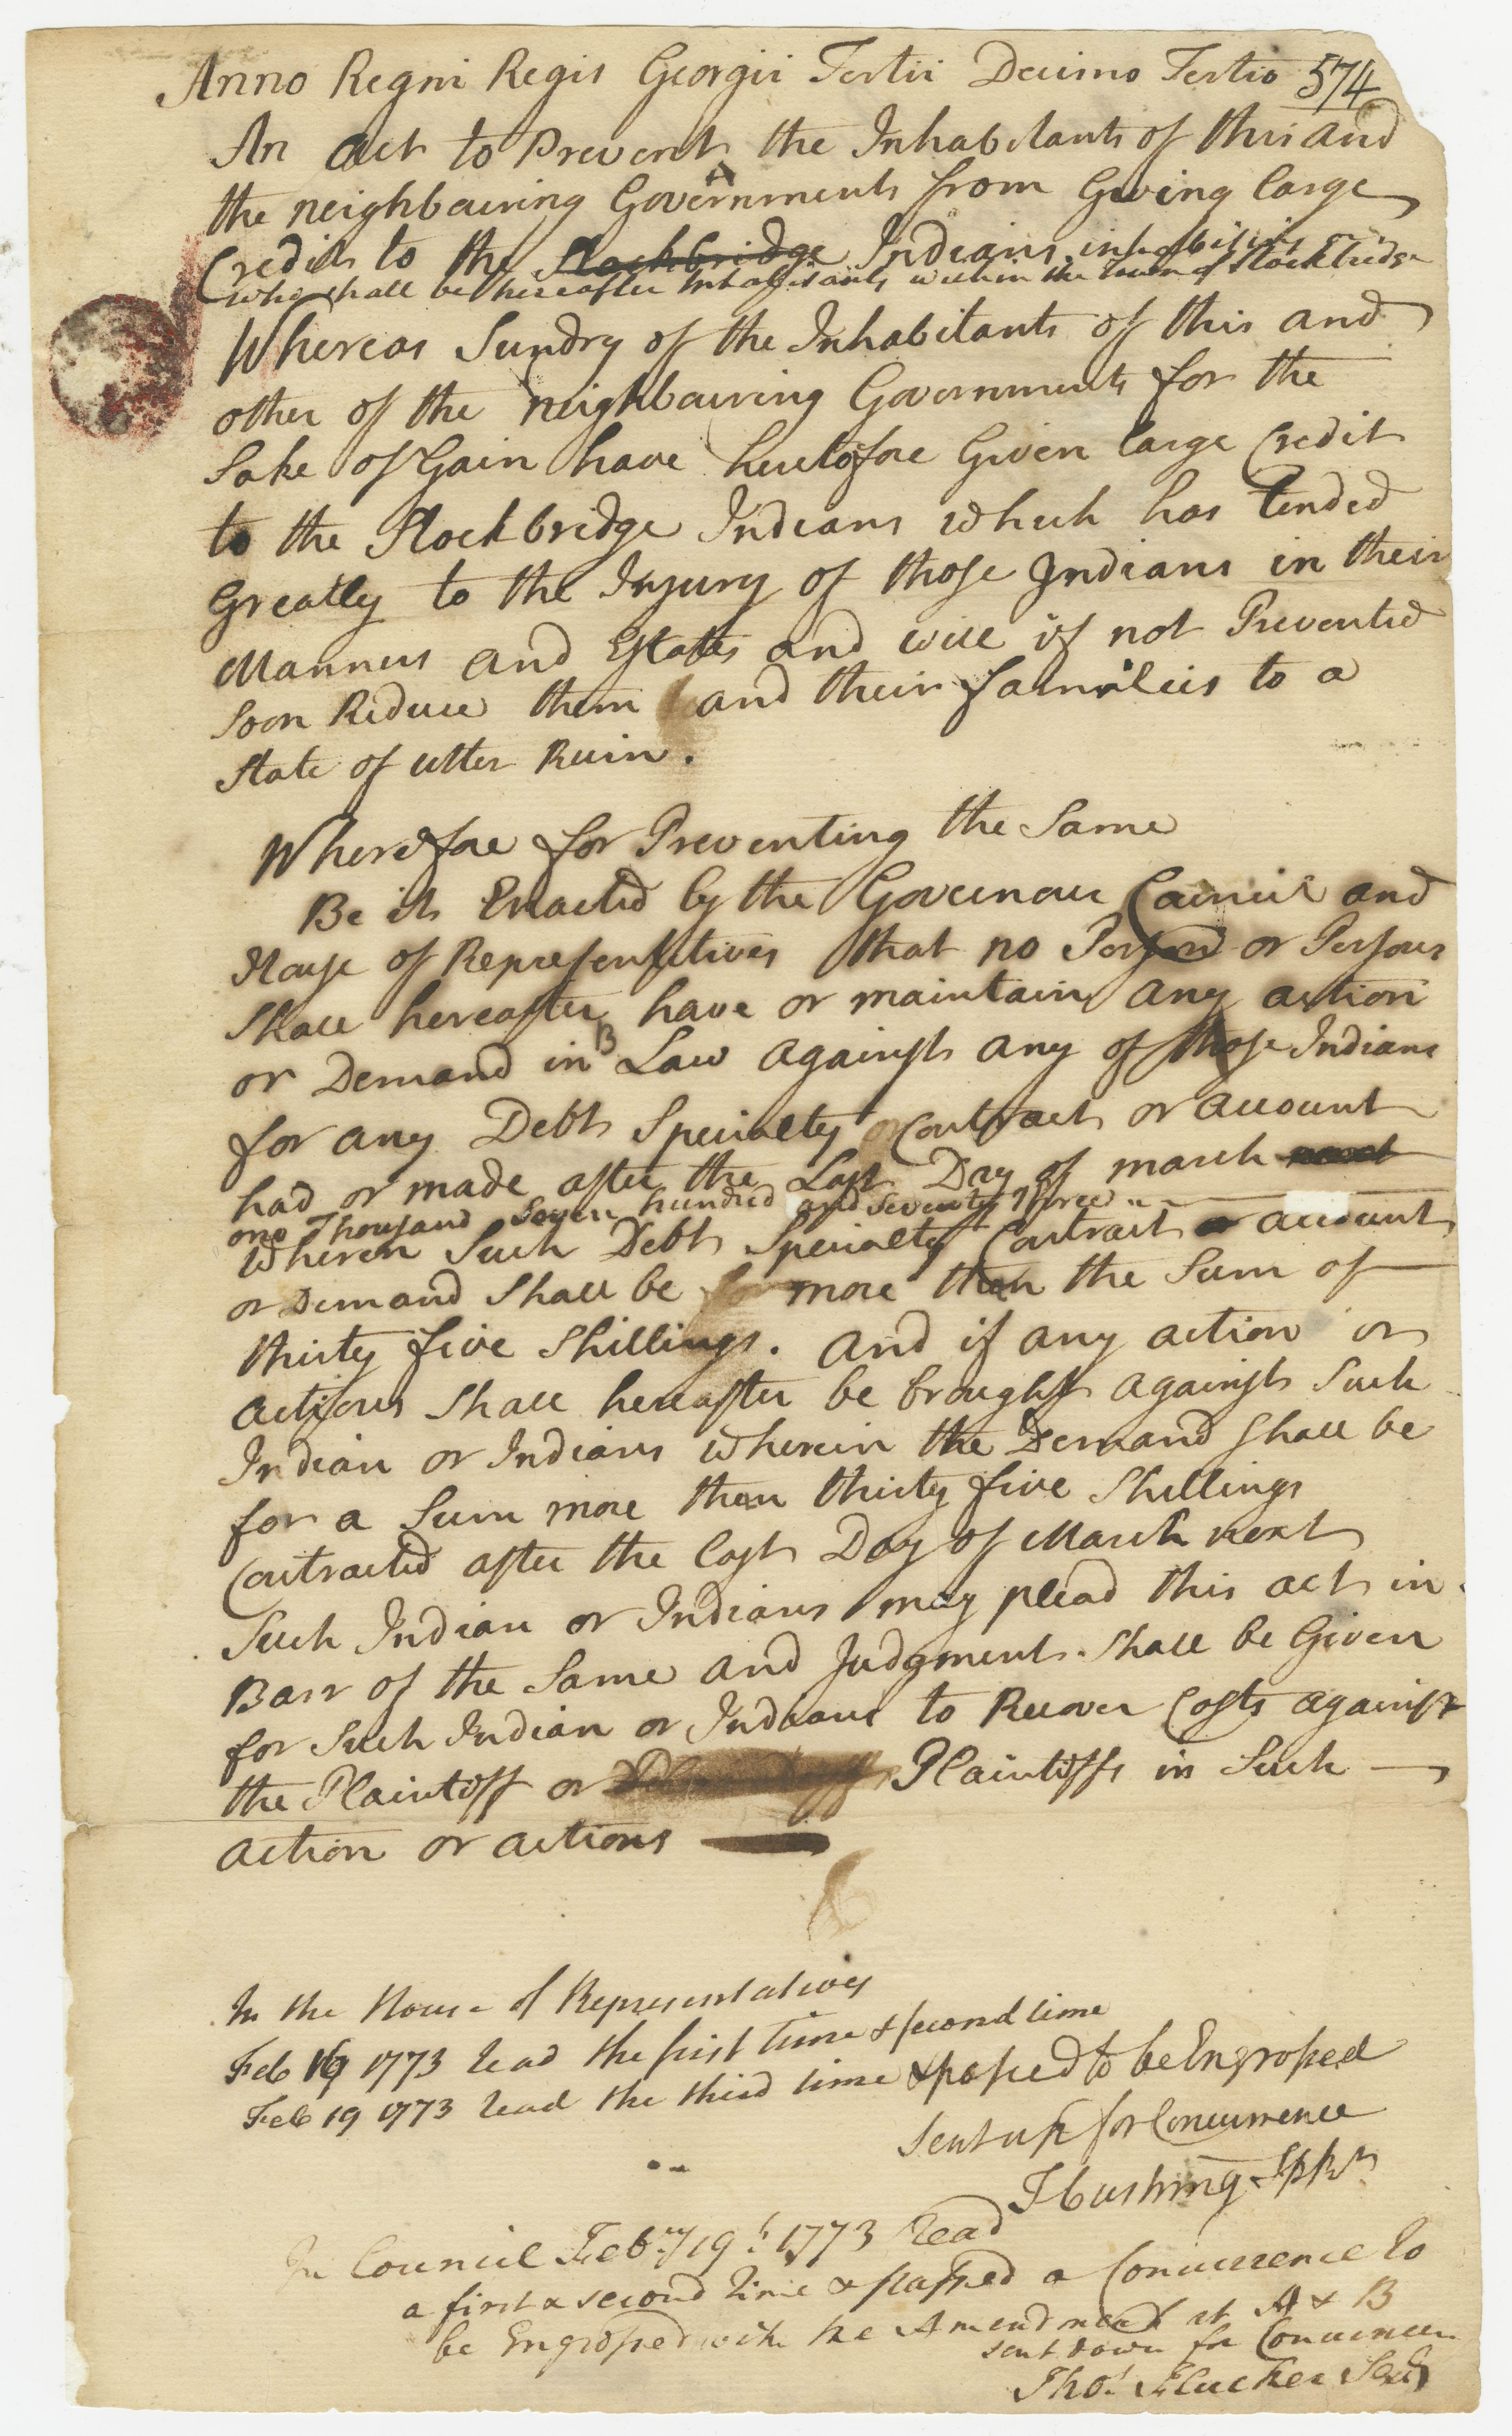 Anno Regni Regis Georgii Tertii Decimo Tertio 574
An act to Prevent the Inhabitants of this and
A
the neighbouring Governments from Giving large
Credits to the Stockbridge Indians inhabiting
who shall be hereafter Inhabitants within the town of Stockbridge
Whereas Sundry of the Inhabitants of this and
other of the neighbouring Governments for the
Sake of Gain have heretofore Given large Credit
to the Stockbridge Indians which has tended
Greatly to the Injury of those Indians in their
Manners and Estates and will if not Prevented
soon Reduce them and their families to a
State of utter Ruin.
Wherefore for Preventing the Same
Be it Enacted by the Governour Council and
House of Representitives that no Person or Persons
Shall hereafter have or maintain any action
B
or Demand in Law against any of those Indians
for any Debt Specialty or Contract or account
had or made after the Last Day of march next
one Thousand Seven hundred and Seventy Three
Wherein Such Debt Specialty Contract or account
or Demand Shall be for more then the Sum of
thirty five Shillings. and if any action or
actions Shall hereafter be brought against Such
Indian or Indians wherein the Demand Shall be
for a Sum more then thirty five Shillings
Contracted after the last Day of March next
Such Indian or Indians may plead this act in
Barr of the Same and Judgment Shall be Given
for Such Indian or Indians to Recover Costs against
the Plaintiff or Plaintiffs in Such
action or actions
In the House of Representatives
Feb 16 1773 read the first time & second time
Feb 19 1773 read the third time & passed to be Engrossed
Sent up for Concurrence
T Cushing Spkr
In Council Febry 19th 1773 Read
a first & second time & passed a Concurrence to
be Engrossed with the Amendment at A & B
sent down for Concurrence
Thos Flucker Secry